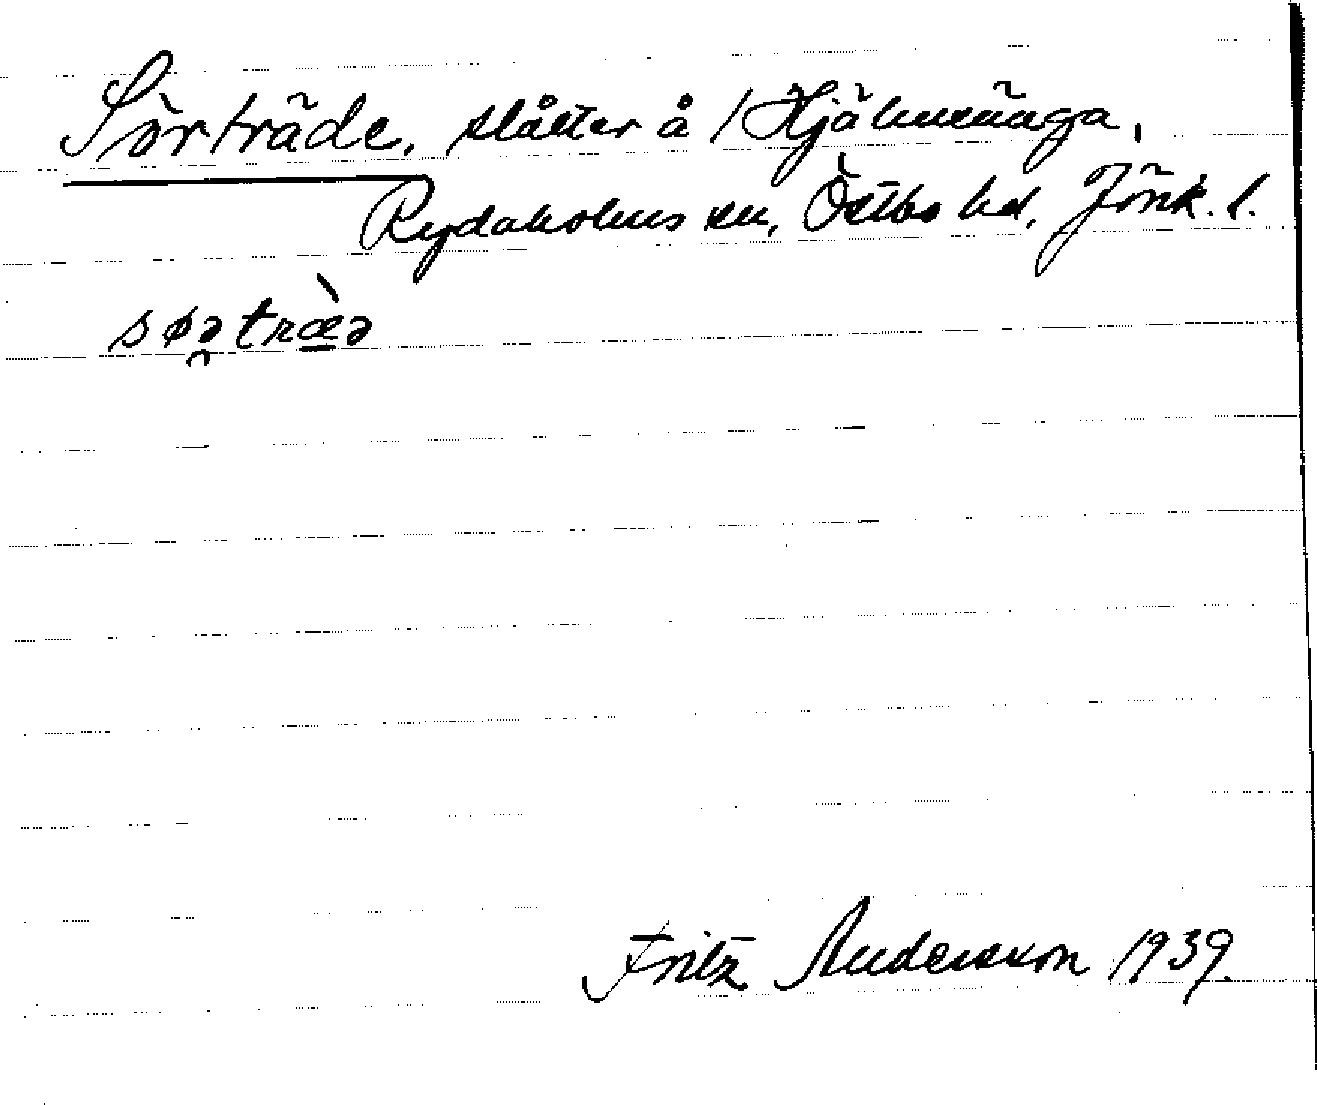 Sörträde, slåtter å / Hjälmsänga,
Rydaholms sn, Östbo hd, Jönk. l.
søə̯træ̀ə
Fritz Andersson 1939.